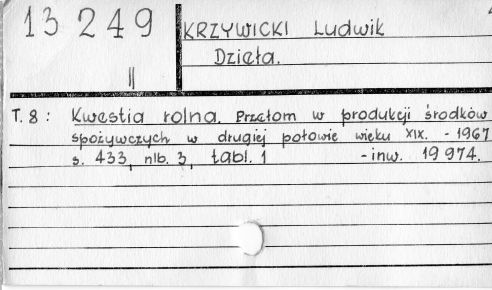 13 249
II
KRZYWICKI Ludwik
Dzieła.
T. 8: Kwestia rolna. Przełom w produkcji środków
spożywczych w drugiej połowie wieku XIX. - 1967
s. 433, nlb. 3, tabl. 1 - inw. 19 974.